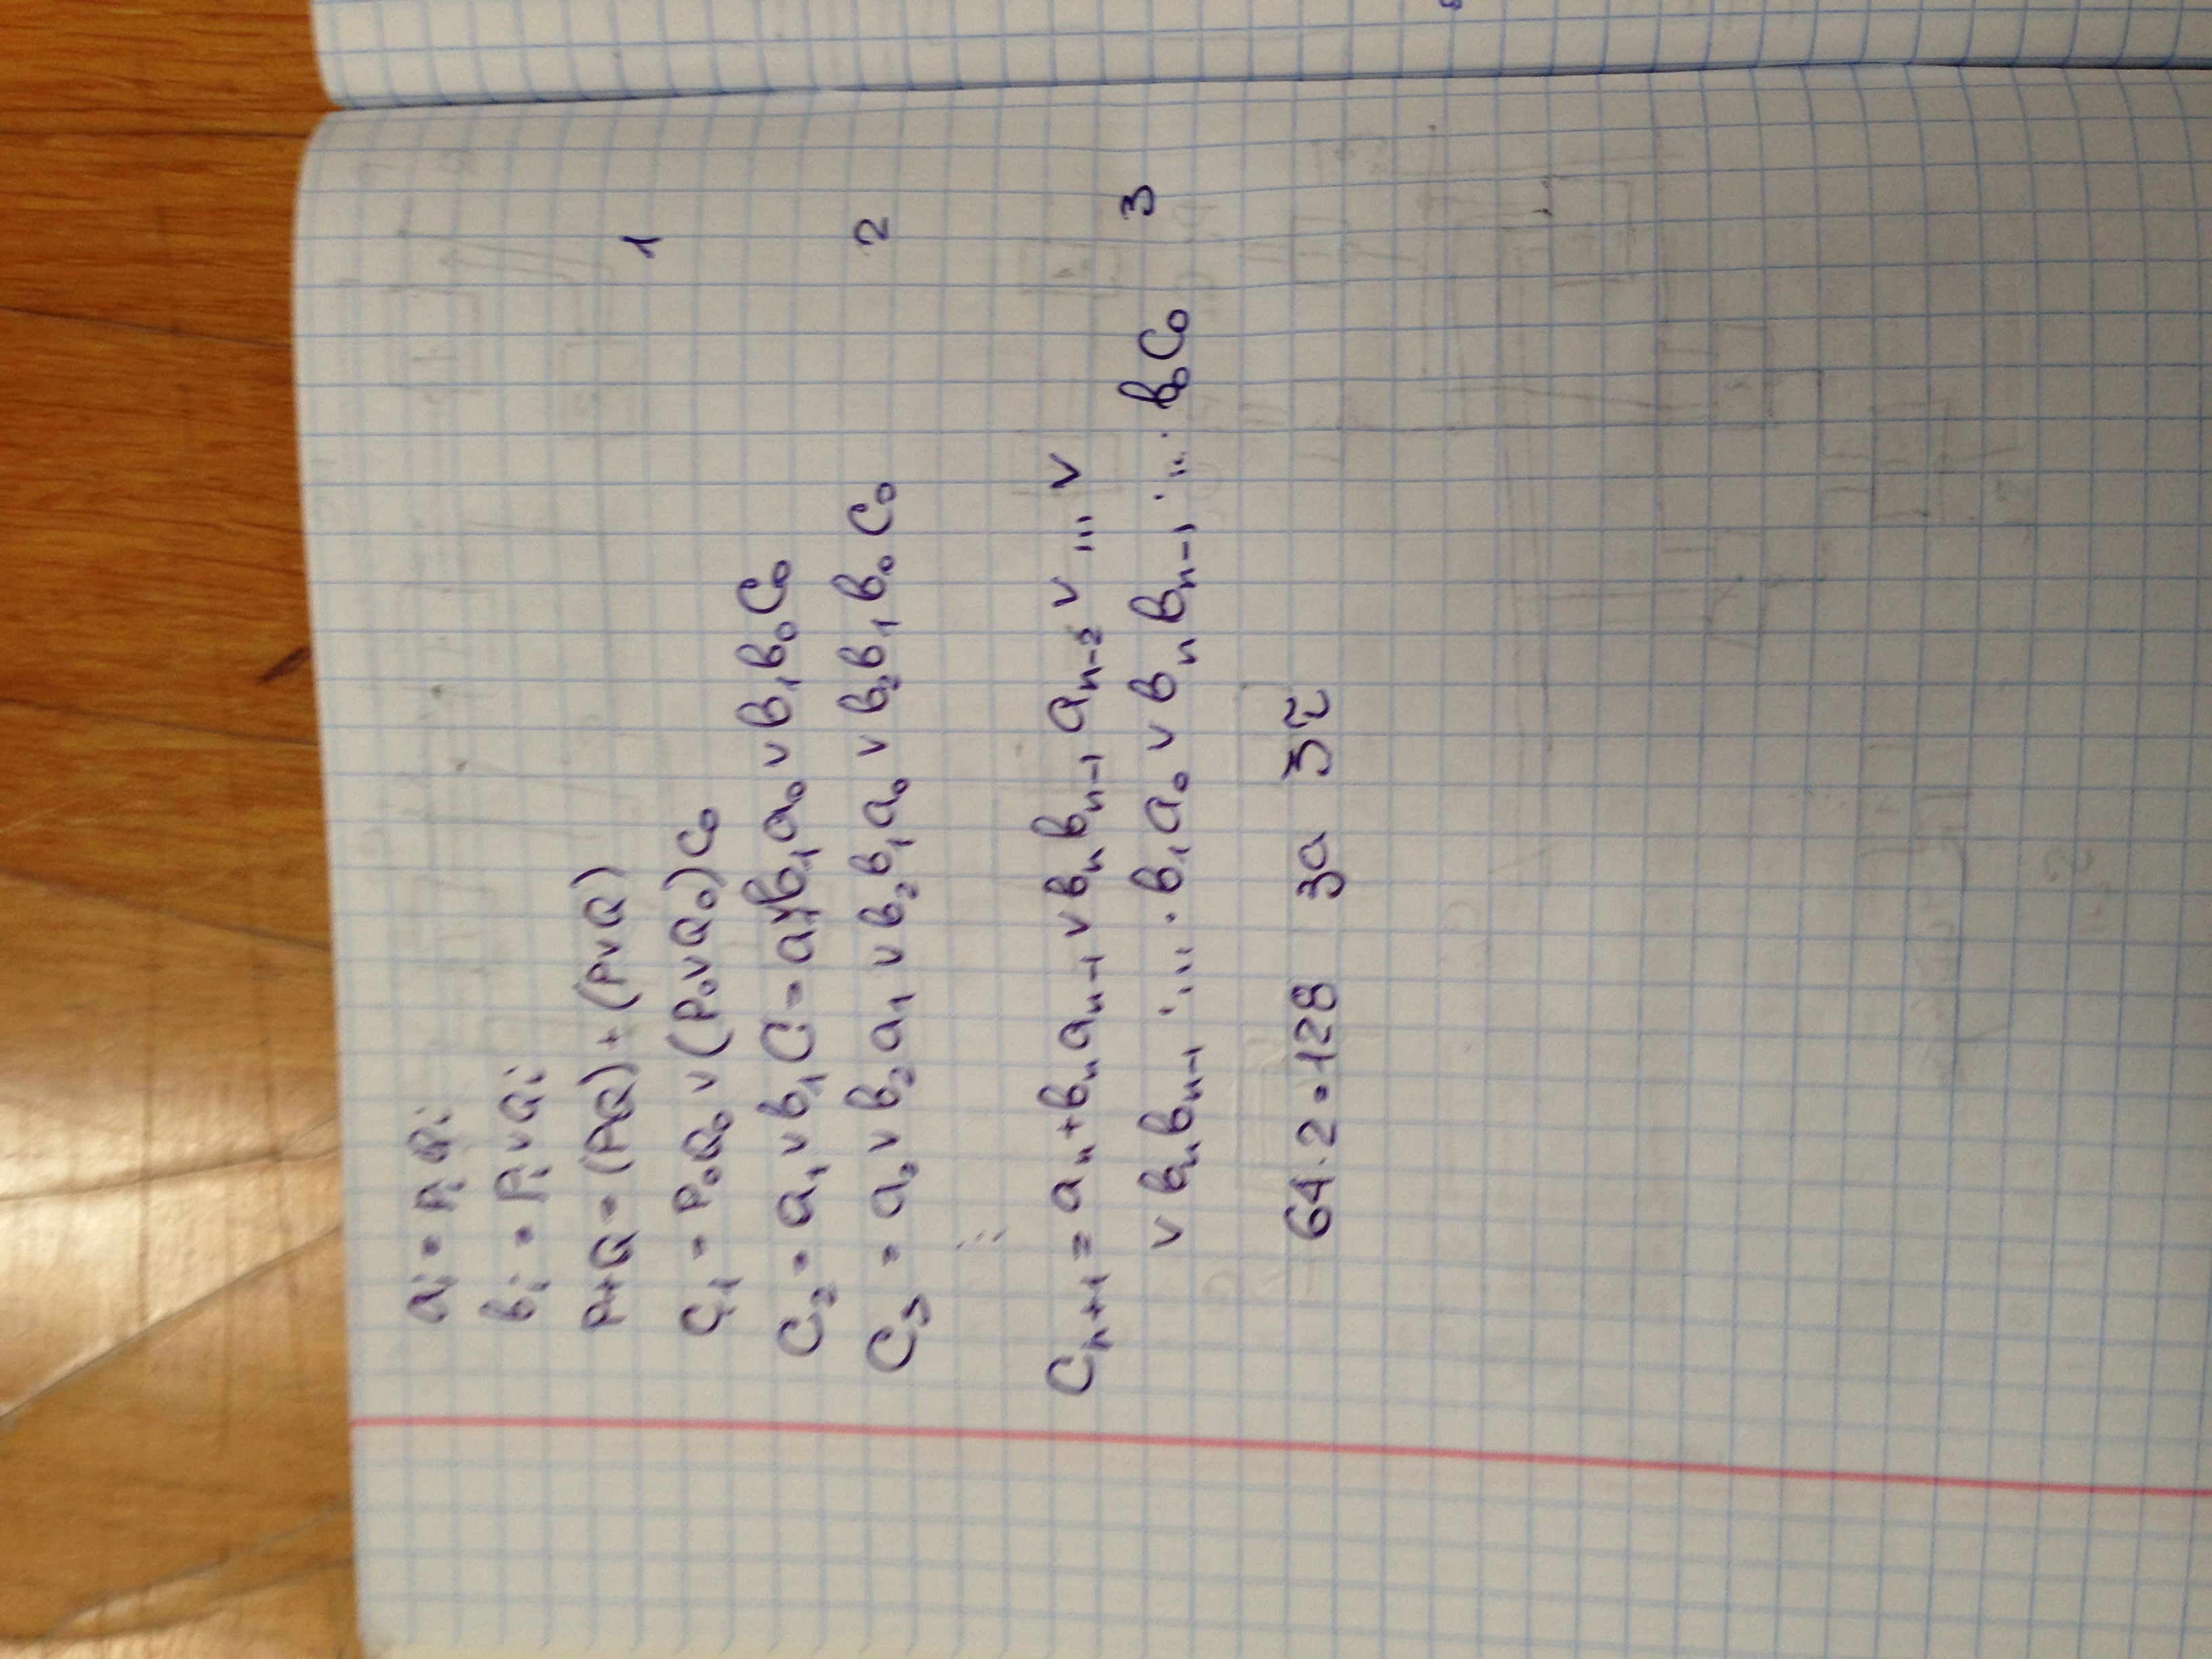 aᵢ = Pᵢ Qᵢ
вᵢ = Pᵢ ∨ Qᵢ
P+Q = (PQ) + (P∨Q)
1
C₁ = P₀Q₀ ∨ (P₀∨Q₀)C₀
C₂ = a₁ ∨ в₁ C = a₁∨в₁a₀ ∨ в₁в₀C₀
C₃ = a₂ ∨ в₂a₁ ∨ в₂в₁a₀ ∨ в₂в₁в₀C₀
2
⋮
Cₙ₊₁ = aₙ + вₙaₙ₋₁ ∨ вₙвₙ₋₁aₙ₋₂ ∨ ... ∨
∨ вₙвₙ₋₁ · ... · в₁a₀ ∨ вₙвₙ₋₁ · ... · в₀C₀
3
64·2=128 за 3τ